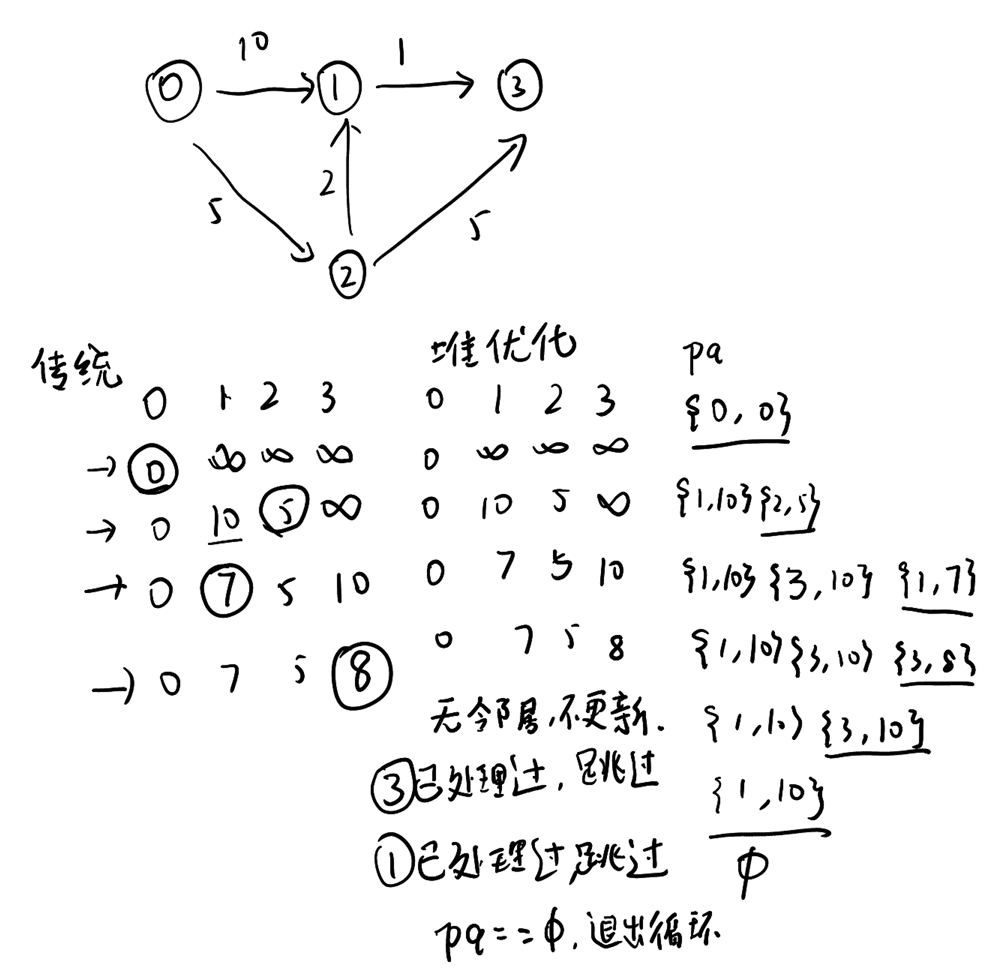 10 1
0 1 3
5 2 5
2
传统 堆优化 pq
0 1 2 3 0 1 2 3 {0,0}
→ 0 ∞ ∞ ∞ 0 ∞ ∞ ∞
→ 0 10 5 ∞ 0 10 5 ∞ {1,10}{2,5}
→ 0 7 5 10 0 7 5 10 {1,10}{3,10} {1,7}
→ 0 7 5 8 0 7 5 8 {1,10}{3,10} {3,8}
无邻居,不更新. {1,10} {3,10}
③已处理过,跳过 {1,10}
①已处理过,跳过 φ
pq==φ,退出循环.